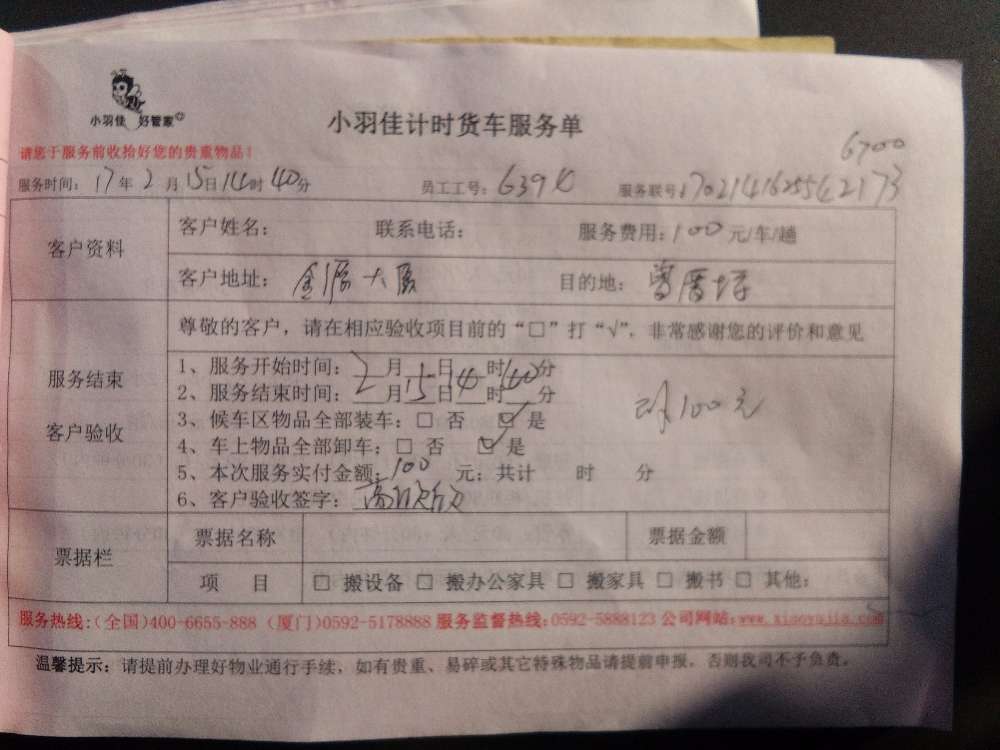 小羽佳 好管家
小羽佳计时货车服务单
请您于服务前收拾好您的贵重物品！
6700
服务时间：17年2月15日14时40分 员工工号：6394 服务联号：1702141625542173
客户资料
客户姓名： 联系电话： 服务费用：100元/车/趟
客户地址：金源大厦 目的地：曾厝垵
服务结束
客户验收
尊敬的客户，请在相应验收项目前的“□”打“√”，非常感谢您的评价和意见
1、服务开始时间：2月15日14时40分
2、服务结束时间：月日时分
3、候车区物品全部装车：□ 否 ☑ 是
4、车上物品全部卸车：□ 否 ☑ 是
100元
5、本次服务实付金额：100元；共计 时 分
6、客户验收签字：
票据栏
票据名称 票据金额
项 目 □ 搬设备 □ 搬办公家具 □ 搬家具 □ 搬书 □ 其他：
服务热线：(全国)400-6655-888 (厦门)0592-5178888 服务监督热线：0592-5888123 公司网站：www.xiaoyujia.com
温馨提示：请提前办理好物业通行手续，如有贵重、易碎或其它特殊物品请提前申报，否则我司不予负责。